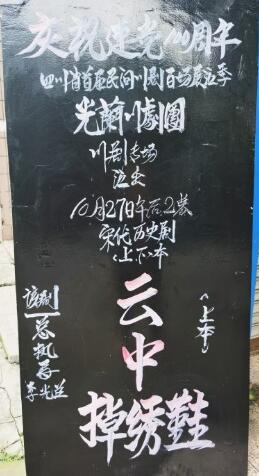 庆祝建党100周年
四川省首届民间川剧百场展演季
光蘭川劇團
川剧专场
演出
10月27日午后2整
宋代历史剧
(上下本
云中
掉绣鞋
(上本)
该剧
总执导
李光兰